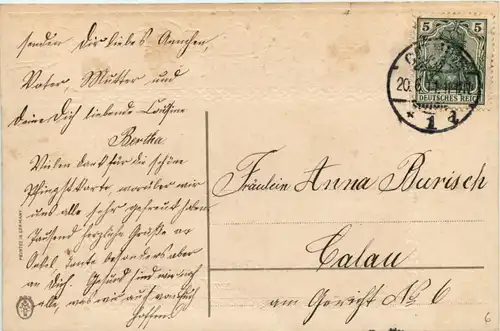 senden Dir liebes Annchen,
Vater, Mutter und
Deine Dich liebende Cousine
Bertha
Vielen dank für die schöne
Pfingstkarte, worüber wir
uns alle sehr gefreut haben.
Tausend herzliche Grüße an
Onkel, Tante besonders aber
an Dich. Gesund sind wir noch
alle, was wir auch von Euch
hoffen.
Fräulein Anna Burisch
Calau
am Gericht No 6
5 5
DEUTSCHES REICH
20. 6.
* 1 d
PRINTED IN GERMANY
6